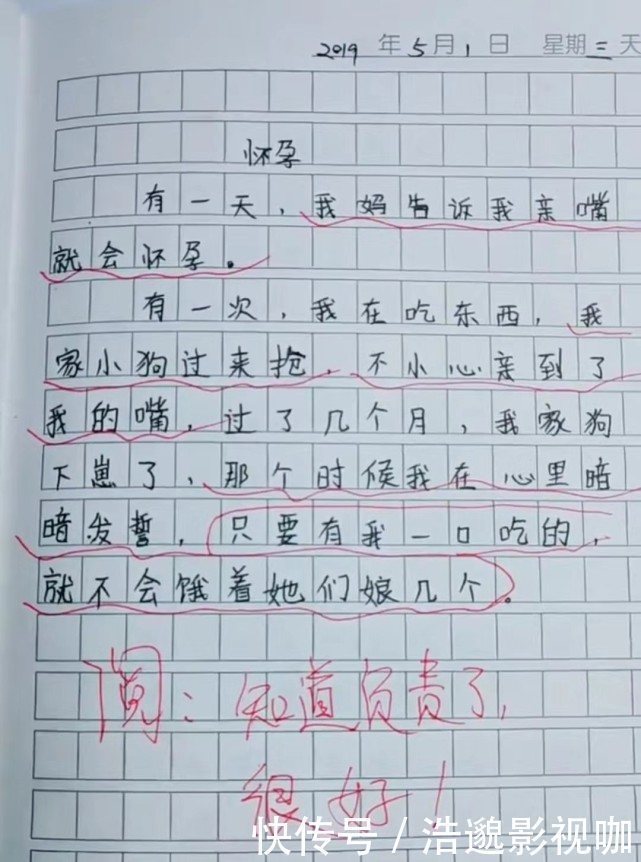 2019 年 5 月 1 日 星期 三 天
怀孕
有一天，我妈告诉我亲嘴
就会怀孕。
有一次，我在吃东西，我
家小狗过来抢，不小心亲到了
我的嘴，过了几个月，我家狗
下崽了，那个时候我在心里暗
暗发誓，只要有我一口吃的，
就不会饿着她们娘几个。
阅：知道负责了，
很好！
快传号 / 浩邈影视咖